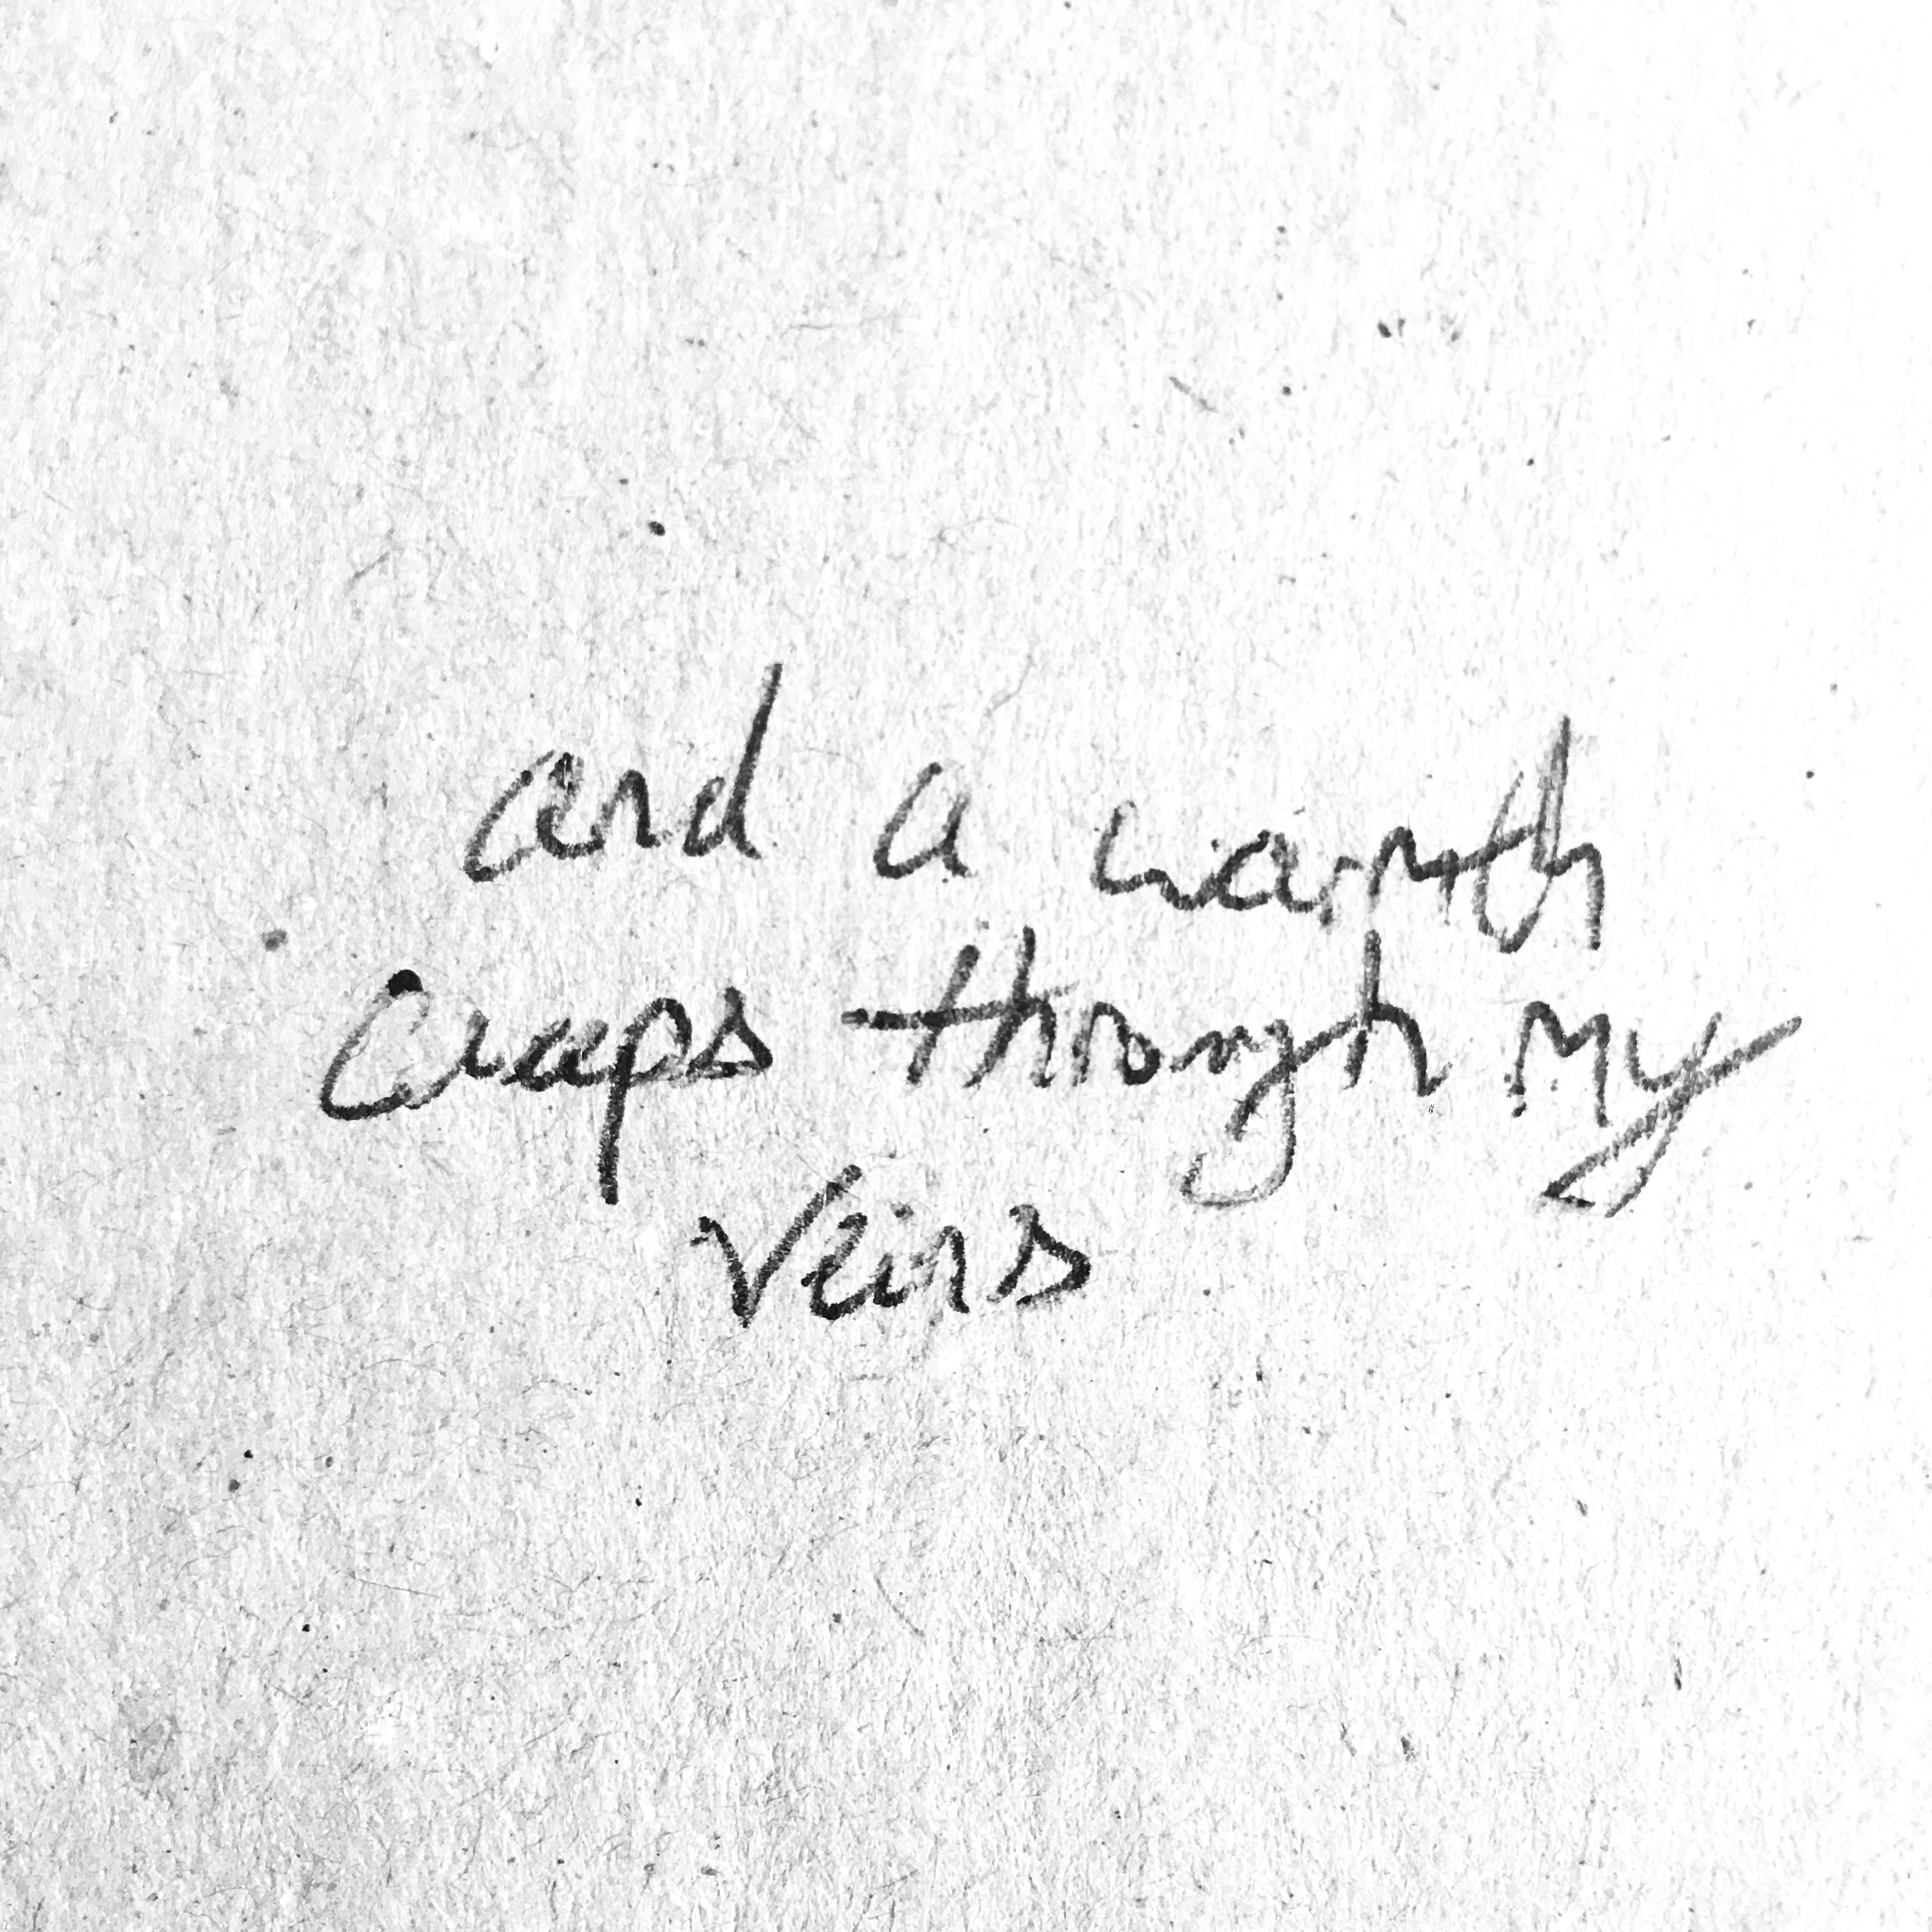 and a warmth
creeps through my
veins